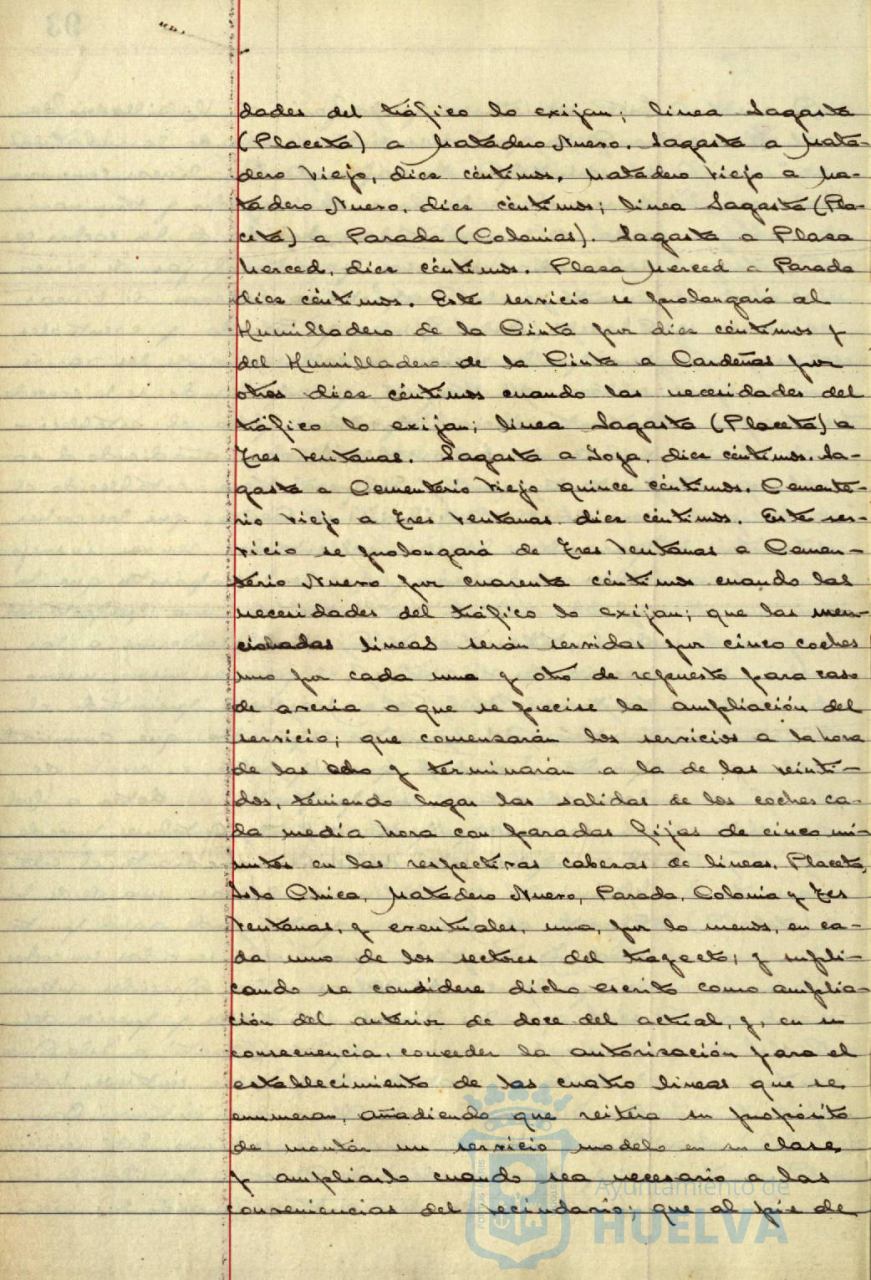 dades del tráfico lo exijan; linea Sagasta
(Placeta) a Matadero Nuevo. Sagasta a Mata-
dero Viejo, diez céntimos, Matadero Viejo a Ma-
tadero Nuevo, diez céntimos; linea Sagasta (Pla-
ceta) a Parada (Colonias). Sagasta a Plaza
Merced, diez céntimos. Plaza Merced a Parada
diez céntimos. Este servicio se prolongará al
Humilladero de la Cinta por diez céntimos y
del Humilladero de la Cinta a Cardeñas por
otros diez céntimos cuando las necesidades del
tráfico lo exijan; linea Sagasta (Placeta) a
Tres Ventanas. Sagasta a diez céntimos. Sa-
gasta a Cementerio Viejo quince céntimos. Cemente-
rio Viejo a Tres Ventanas diez céntimos. Este ser-
vicio se prolongará de Tres Ventanas a Cemen-
terio Nuevo por cuarenta céntimos cuando las
necesidades del tráfico lo exijan; que las men-
cionadas lineas serán servidas por cinco coches
uno por cada una y otro de repuesto para caso
de averia o que se precise la ampliación del
servicio; que comenzarán los servicios a la hora
de las ocho y terminarán a la de las veinti-
dos, teniendo lugar las salidas de los coches ca-
da media hora con paradas fijas de cinco mi-
nutos en las respectivas cabezas de lineas, Placeta,
Isla Chica, Matadero Nuevo, Parada, Colonia y Tres
Ventanas, y eventuales, una, por lo menos, en ca-
da uno de los sectores del trayecto; y supli-
cando se considere dicho escrito como amplia-
ción del anterior de doce del actual, y, en su
consecuencia, conceder la autorización para el
establecimiento de las cuatro lineas que se
enumeran, añadiendo que reitera su propósito
de montar un servicio modelo en su clase,
y ampliarlo cuando sea necesario a las
conveniencias del vecindario; que al pie de
Ayuntamiento de
HUELVA